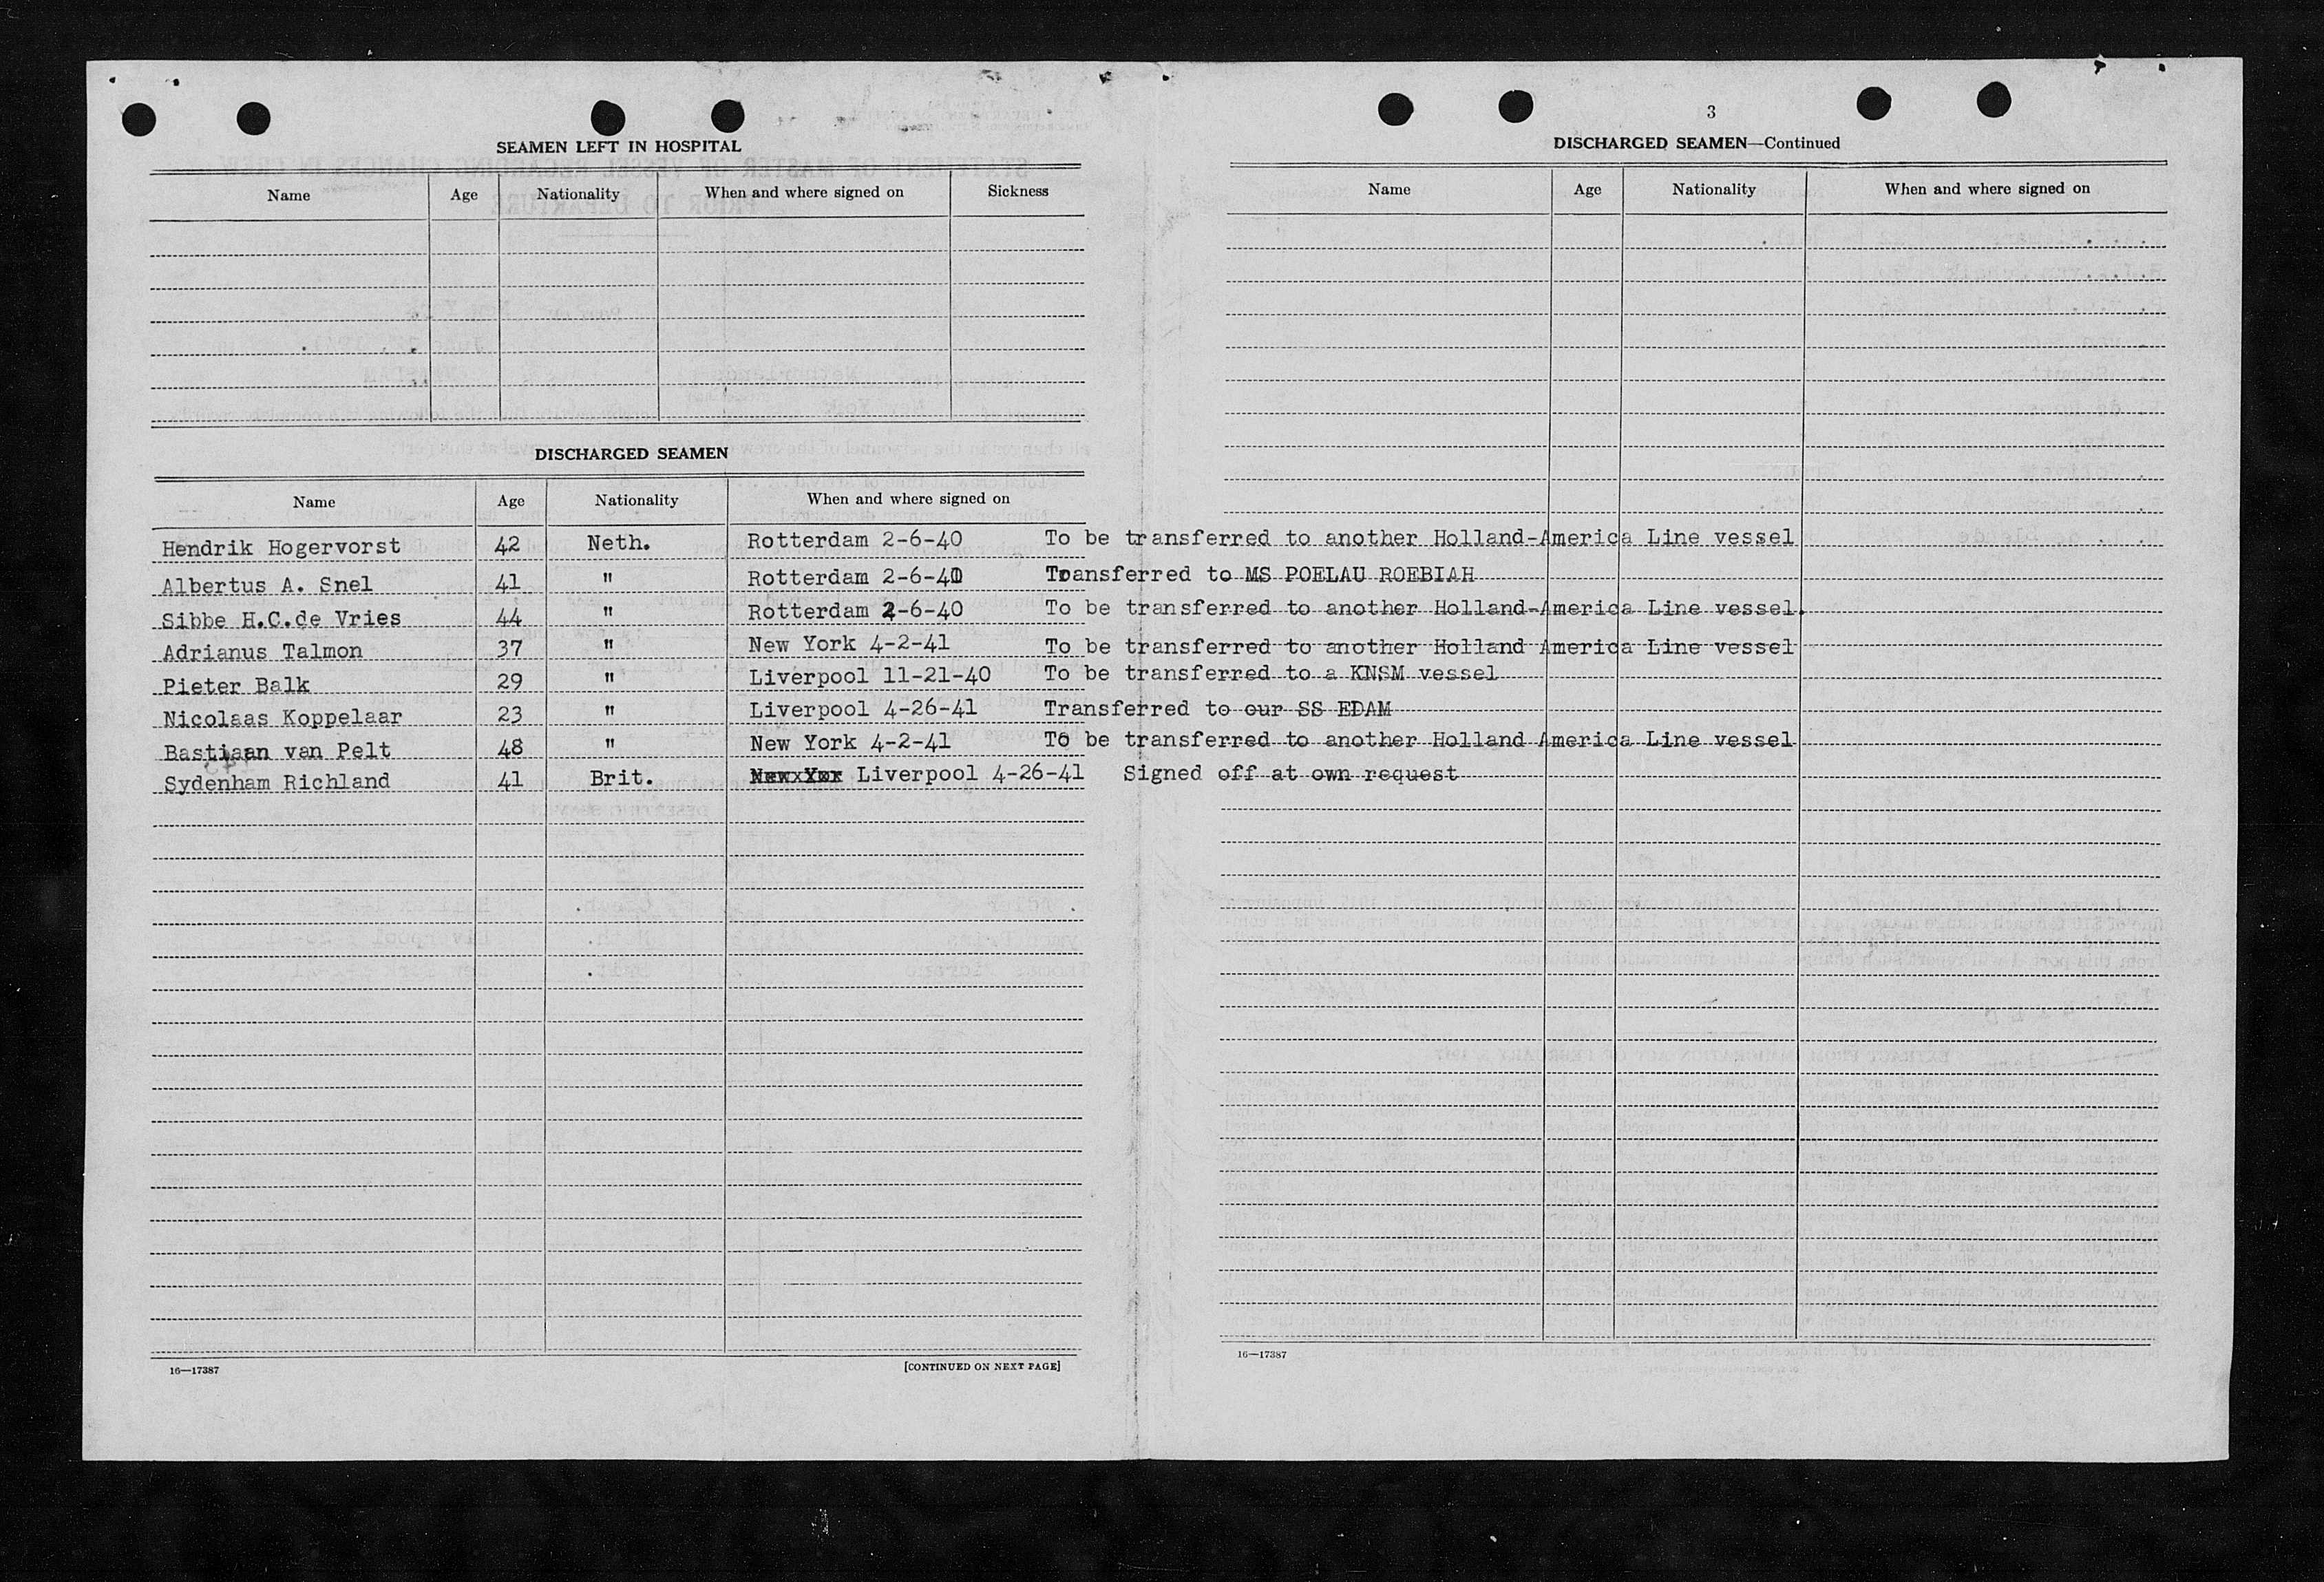 SEAMEN LEFT IN HOSPITAL
Name Age Nationality When and where signed on Sickness
DISCHARGED SEAMEN
Name Age Nationality When and where signed on
Hendrik Hogervorst 42 Neth. Rotterdam 2-6-40 To be transferred to another Holland-America Line vessel
Albertus A. Snel 41 " Rotterdam 2-6-40 Transferred to MS POELAU ROEBIAH
Sibbe H.C.de Vries 44 " Rotterdam 2-6-40 To be transferred to another Holland-America Line vessel.
Adrianus Talmon 37 " New York 4-2-41 To be transferred to another Holland America Line vessel
Pieter Balk 29 " Liverpool 11-21-40 To be transferred to a KNSM vessel
Nicolaas Koppelaar 23 " Liverpool 4-26-41 Transferred to our SS EDAM
Bastiaan van Pelt 48 " New York 4-2-41 To be transferred to another Holland America Line vessel
Sydenham Richland 41 Brit. Liverpool 4-26-41 Signed off at own request
16—17387
[CONTINUED ON NEXT PAGE]
3
DISCHARGED SEAMEN—Continued
Name Age Nationality When and where signed on
16—17387